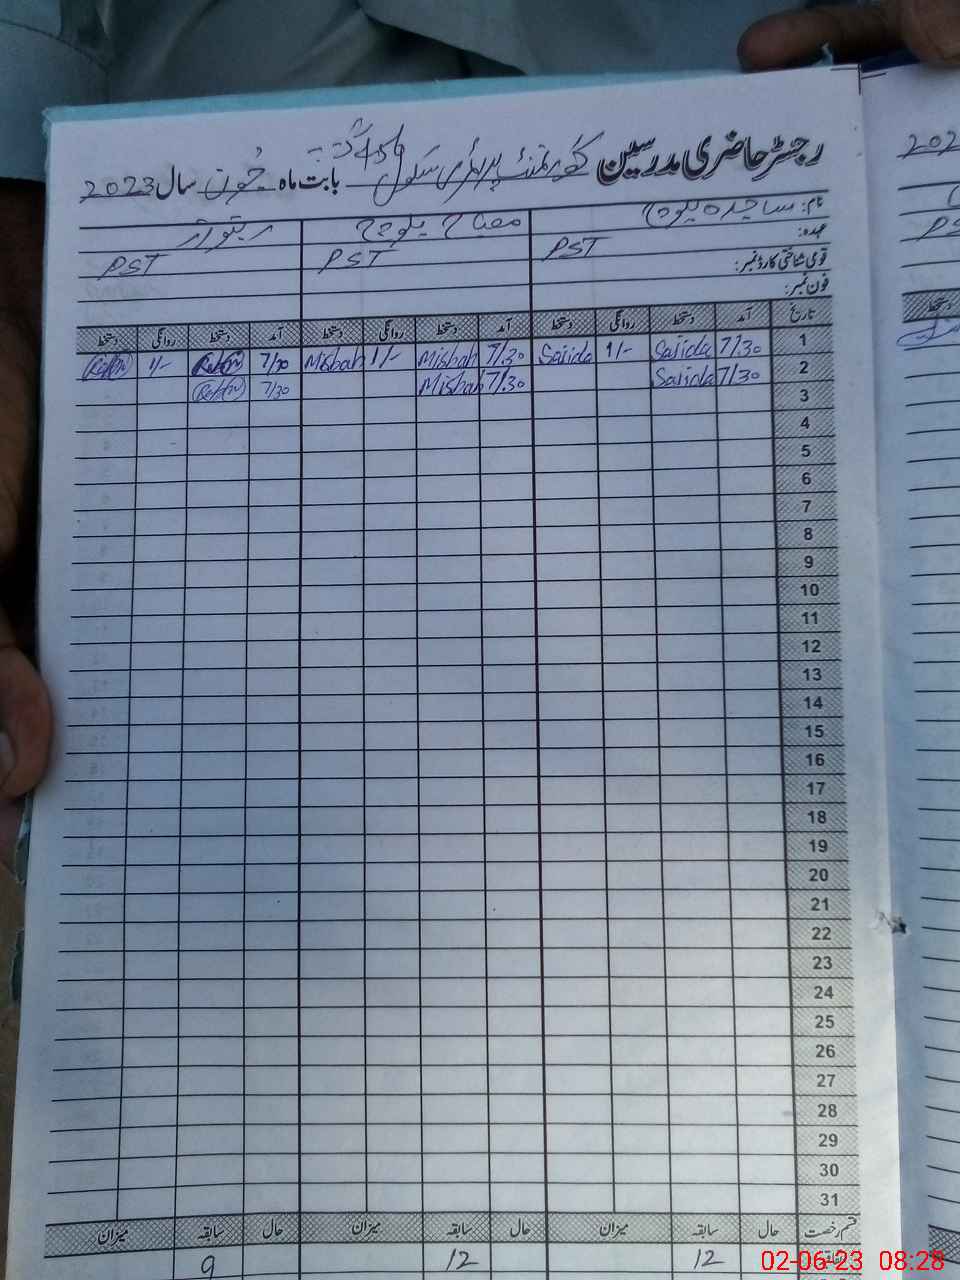 رجسٹر حاضری مدرسین گورنمنٹ پرائمری سکول بابت ماہ جون سال 2023
نام: ساجدہ بلوچ مصباح بلوچ
عہدہ: PST PST PST
قومی شناختی کارڈ نمبر:
فون نمبر:
تاریخ آمد دستخط روانگی دستخط آمد دستخط روانگی دستخط آمد دستخط روانگی دستخط
1 7/30 Sajida 1/- Sajida 7/30 Misbah 1/- Misbah 7/30 1/-
2 7/30 Sajida 7/30 Misbah 7/30
3
4
5
6
7
8
9
10
11
12
13
14
15
16
17
18
19
20
21
22
23
24
25
26
27
28
29
30
31
قسم رخصت حال سابقہ میزان حال سابقہ میزان حال سابقہ میزان
12 12 9
02-06-23 08:28
202
PS